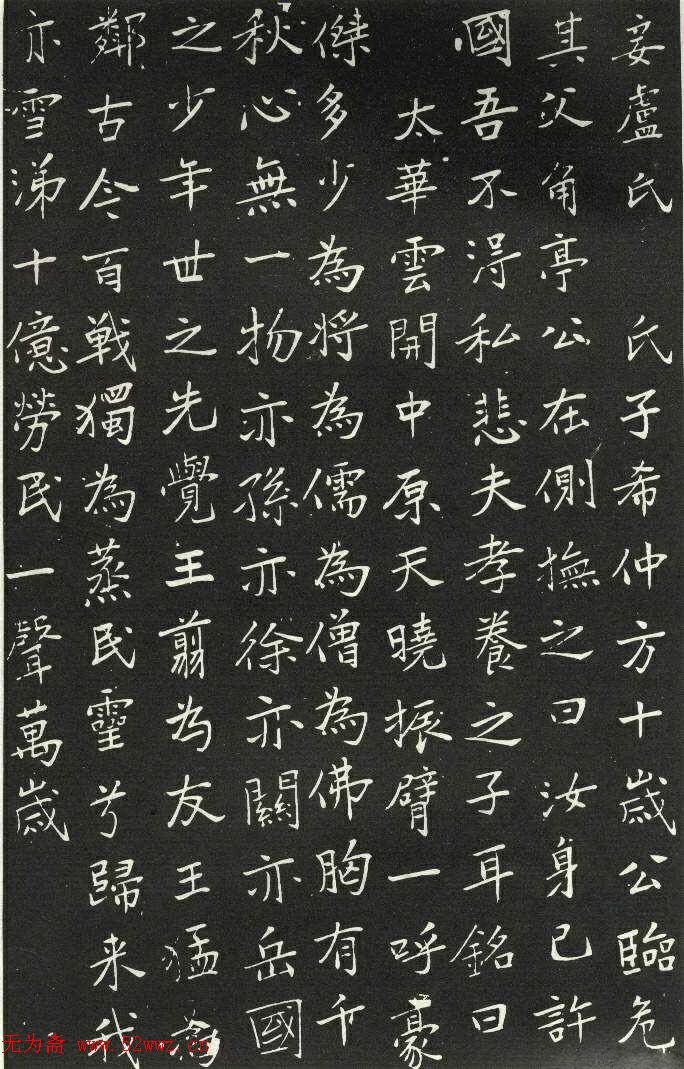 妾盧氏 氏子希仲方十歲公臨危
其父角亭公在側撫之曰汝身已許
國吾不淂私悲夫孝養之子耳銘曰
太華雲開中原天曉振臂一呼豪
傑多少為將為儒為僧為佛胸有千
秋心無一物亦孫亦徐亦關亦岳國
之少年世之先覺王翦为友王猛為
鄰古今百戰獨為蒸民靈兮歸来我
亦雪涕十億勞民一聲萬歲
无为斋 www.52wwz.cn